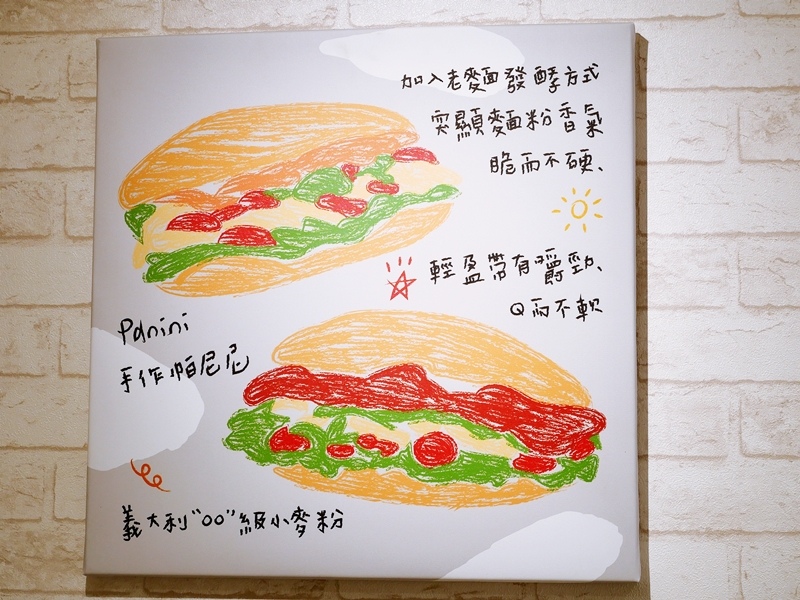 加入老麵發酵方式
突顯麵粉香氣
脆而不硬、
輕盈帶有嚼勁、
Q而不軟
Panini
手作帕尼尼
義大利"00"級小麥粉